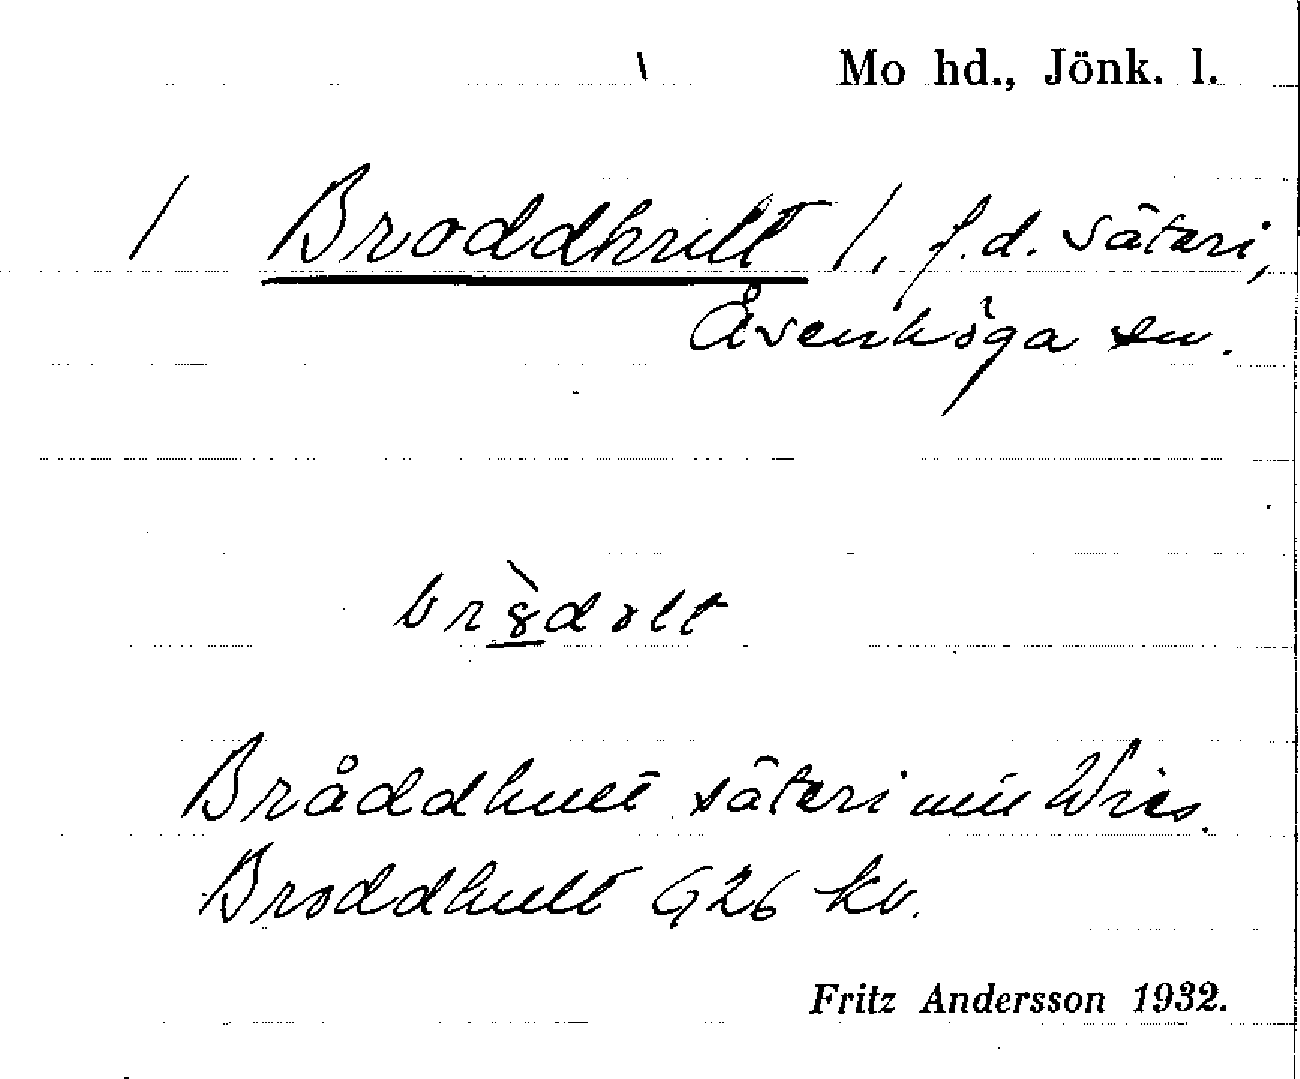 Mo hd., Jönk. l.
/ Broddhult /, f.d. säteri,
Åsenhöga sn.
Bråddhult säteri Wies.
Broddhult G 26 kv.
Fritz Andersson 1932.